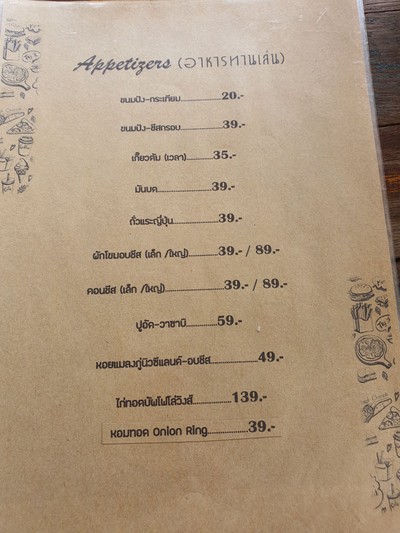 Appetizers (อาหารทานเล่น)
ขนมปัง-กระเทียม...............20.-
ขนมปัง-ชีสกรอบ...............39.-
เกี๊ยวคัม (เวลา)..........35.-
มันบด....................39.-
ถั่วแระญี่ปุ่น.................39.-
ผักโขมอบชีส (เล็ก /ใหญ่)...........39.- / 89.-
คอนชีส (เล็ก /ใหญ่)......................39.- / 89.-
ปูอัด-วาซาบิ...........59.-
หอยแมลงภู่นิวซีแลนด์-อบชีส.................49.-
ไก่ทอดบัพโฟโล่วิงส์..............139.-
หอมทอด Onion Ring...............39.-